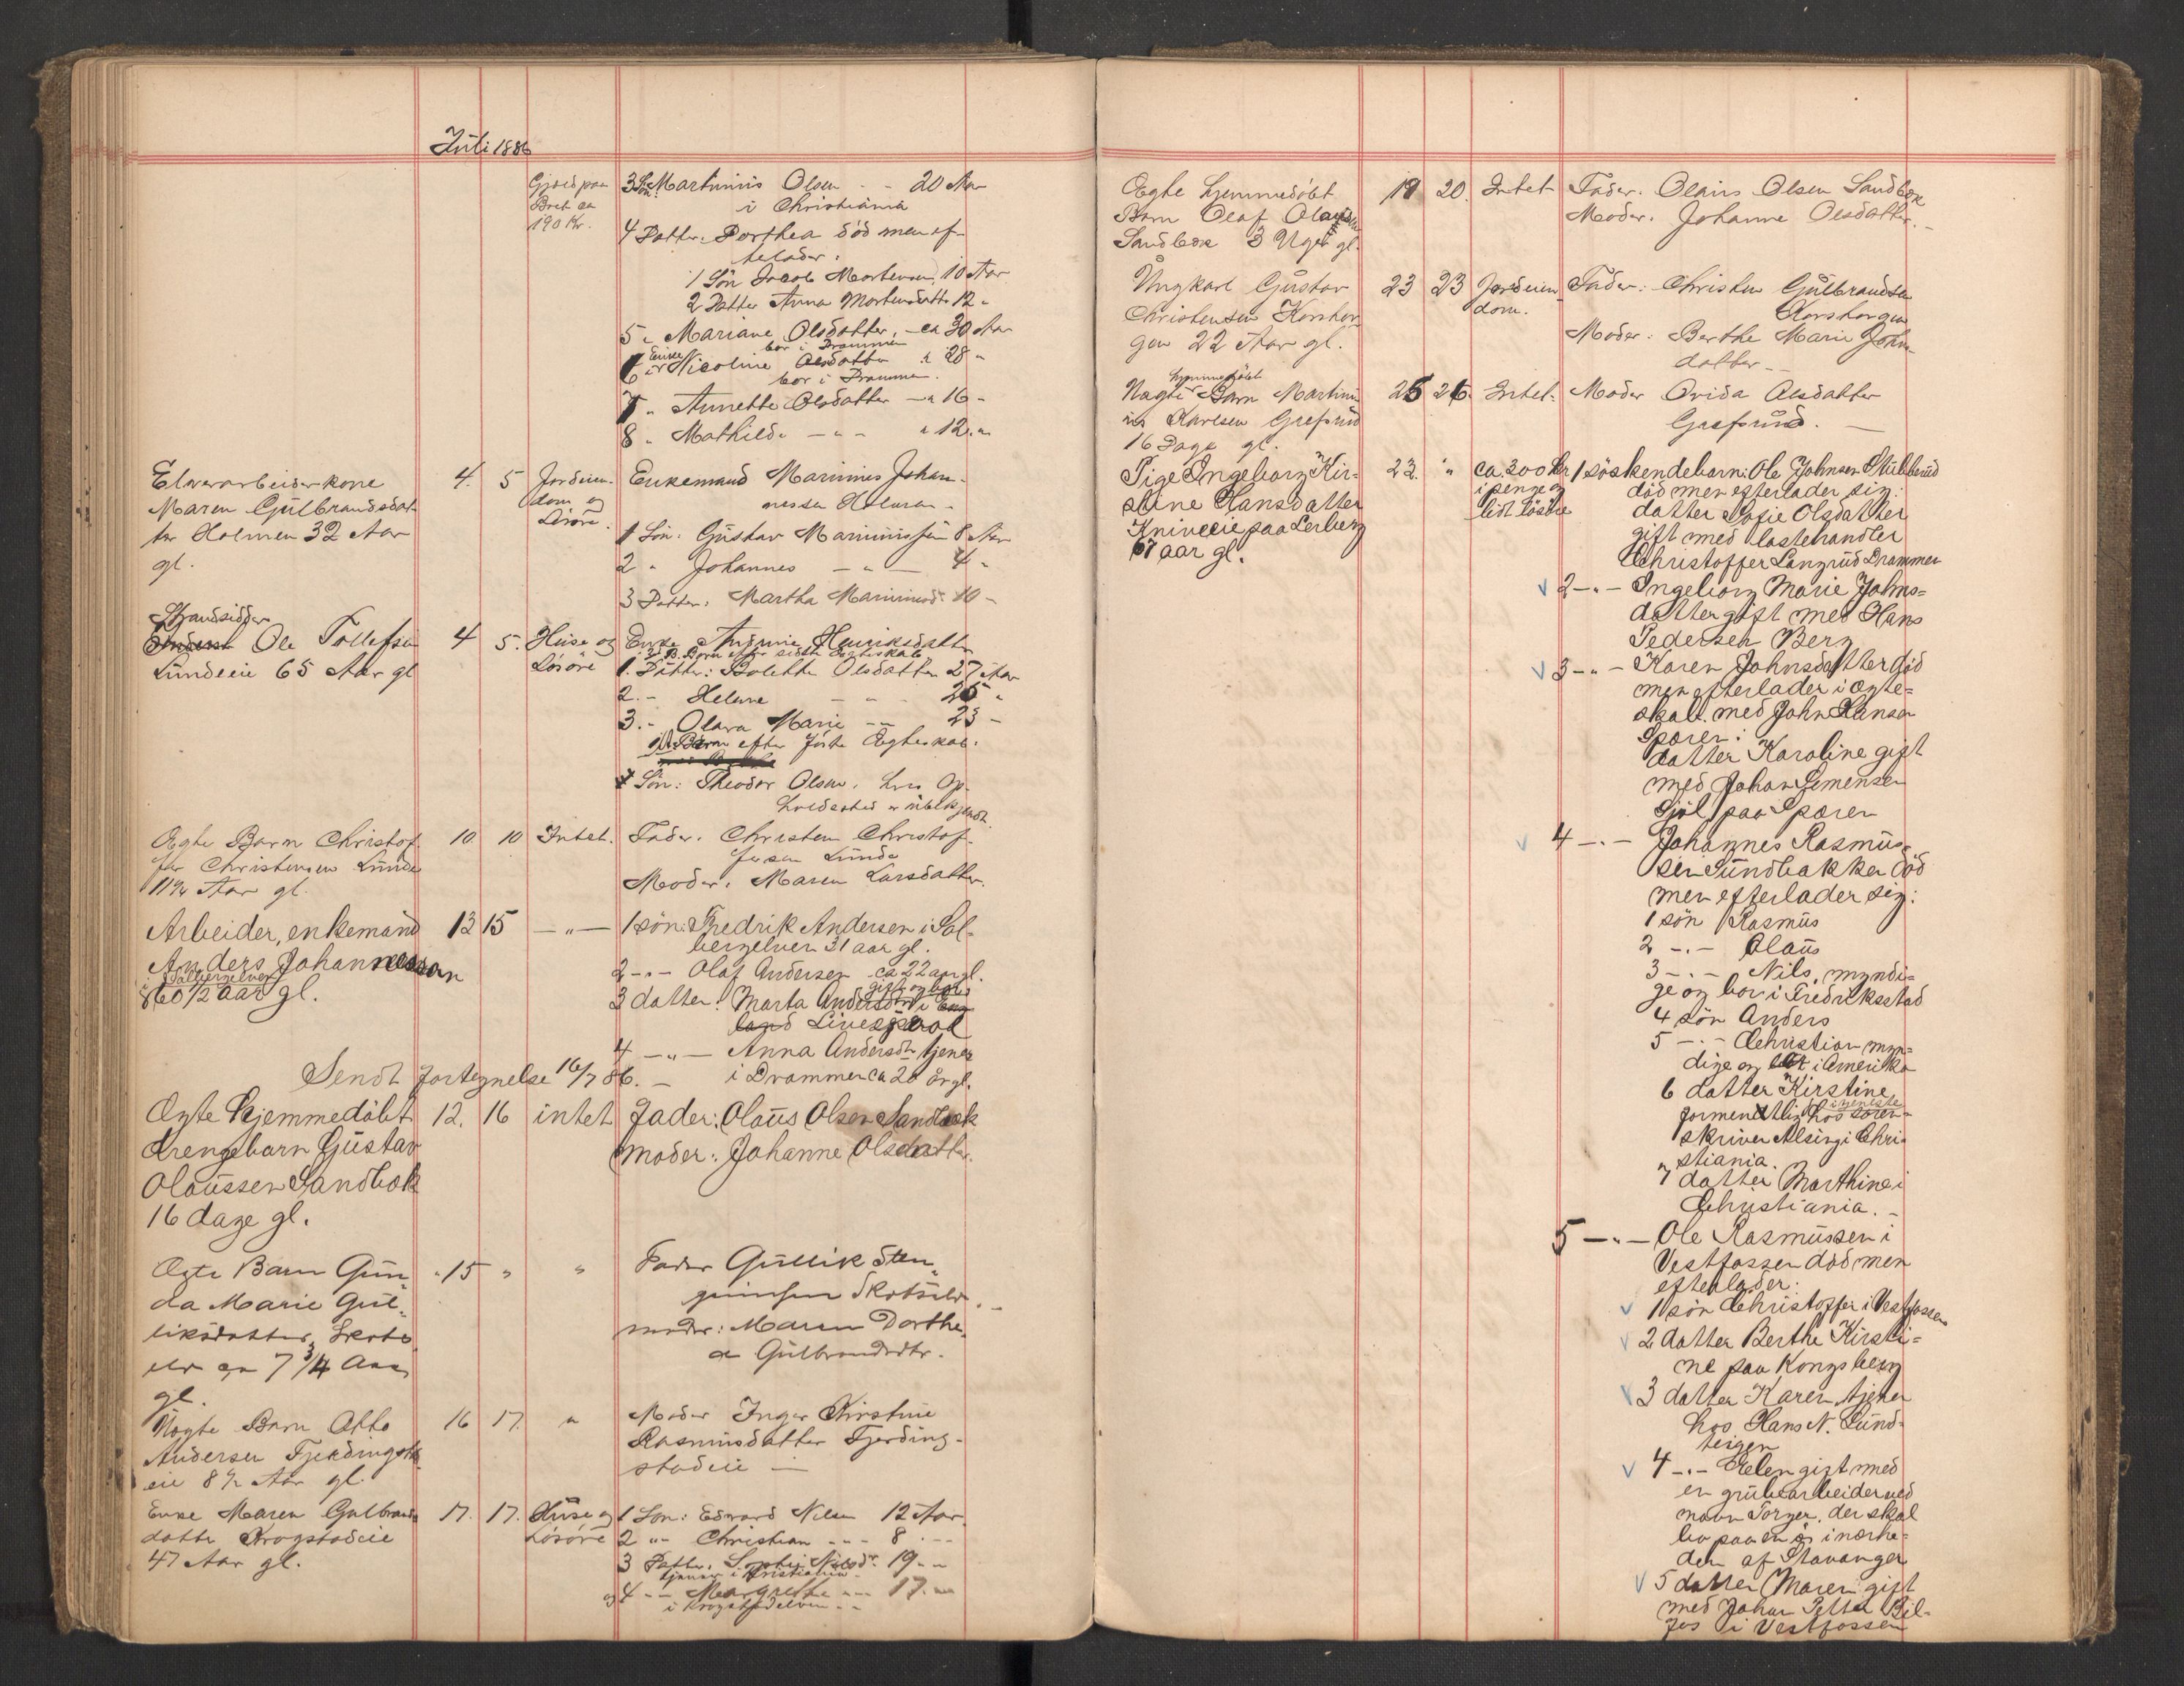 Juli 1886
Gjæld paa
Bret ca
190 Kr.
3 Sön Martinius Olsen - - 20 Aar
i Christiania
4 Datter. Dorthea död men ef-
terlader:
1 Sön Jacob Mortensen, 10 Aar
2 Datter Anna Mortensdatter 12 "
5 " Mariane Olsdatter, - ca 30 Aar
bor i Drammen
6 Enke Nicoline Olsdatter " 28 "
bor i Drammen.
7 " Annette Olsdatter - " 16 -
8 " Mathilde - " - " 12 "
Elvearbeiderkone
Maren Gulbrandsdat-
ter Holmen 32 Aar
gl.
4. 5 Jordeien-
dom og
Lösöre.
Enkemand Marinius Johan-
nessen Holmen -
1 Sön: Gustav Mariniussen 8 Aar
2 " Johannes - " - 4 "
3 Datter: Martha Mariniusd. 10 -
Strandsidder
Inderst Ole Tollefsen
Lundeeie 65 Aar gl
4 5. Huse og
Lösöre
Enke Andrine Henriksdatter
Börn efter sidste Egteskab
1. Datter: Bolette Olsdatter 27 Aar
2. - Helene - - 25 "
3. - Olava Marie - - 23 -
Börn efter förste Ægteskab:
Sön: Theodor Olsen, hvis Op-
holdssted er ubekjendt.
Ægte Barn Christof-
fer Christensen Lunde
11½ Aar gl.
10. 10 Intet.
Fader. Christen Christof-
fersen Lunde
Moder. Maren Larsdatter.
Arbeider, enkemand
Anders Johannessen
i Solbergelven
60 1/2 aar gl.
13 15 - " -
1 sön: Fredrik Andersen i Sol-
bergelven 31 aar gl.
2 - " - Olaf Andersen ca 22 aar gl.
gift og bor
3 datter: Marta Andersdtr i Eng
land Liverpool
4 - " - Anna Andersdtr tjener
i Drammen ca 20 år gl.
Sendt fortegnelse 16/7 86. -
Ægte hjemmedöbt
drengebarn Gustav
Olaussen Sandbæk
16 dage gl.
12. 16 intet
Fader: Olaus Olsen Sandbæk
moder: Johanne Olsdatter.
Ægte Barn Gun-
da Marie Gul-
liksdatter, Skots-
elv ca 7 3/4 Aar
gl.
" 15 " "
Fader Gullik Sten-
Skotselv. -
moder: Maren Dorthe-
a Gulbrandsdtr.
Uægte Barn Otto
Andersen Fjerdingstad-
eie 8½ Aar gl
16 17. "
Moder Inger Kirstine
Rasmusdatter Fjerding-
stadeie -
Enke Maren Gulbrands-
datter Krogstadeie
47 Aar gl.
17. 17. Huse og
Lösöre
1 Sön: Edvard Nilsen 12 Aar.
2 " - Christian - - - 8 - - -
3 Datter. Sophie Nilsdr. 19 - "
tjener i Kristiania -
og 4 - - Margrethe - - - 17. -
i Krogstadelven - -
Ægte hjemmedöbt
Barn Olaf Olaussen
Sandbæk 3 Uger gl.
19 20. Intet
Fader. Olaus Olsen Sandbæk
Moder. Johanne Olsdatter. -
Ungkarl Gustav
Christensen Korshau-
gen 22 Aar gl.
23 23 Jordeien-
dom.
Fader: Christen Gulbrandsen
Korshaugen
Moder: Berthe Marie John-
datter - -
hjemmedöbt
Uægte Barn Martini-
us Karlsen Grefsrud
16 Dage gl.
25 26. Intet.
Moder Ovida Olsdatter
Grefsrud. -
Pige Ingeborg Kir-
stine Hansdatter
Kniveeie paa Lerberg
67 aar gl.
22. " ca. 300 kr
i penge og
lidt lösöre
1 söskendebarn: Ole Johnsen Stubberud
död men efterlader sig:
datter Sofie Olsdatter
gift med lastehandler
Christoffer Langrud Drammen
2 - " - Ingeborg Marie Johns-
datter gift med Hans
Pedersen Berg
3 - " - Karen Johnsdatter död
men efterlader i ægte-
skab med John Hansen
Sporen:
datter Karoline gift
med Johan Simensen
Sjöl paa Sporen
4 - " - Johannes Rasmus-
sen Sundbakken död
men efterlader sig:
1 sön Rasmus
2 - " - Olaus
3 - " - Nils, myndi-
ge og bor i Fredriksstad
4 sön Anders
5 - " - Christian myn-
dige og i Amerika
6 datter Kirstine
i tjeneste
formentlig hos soren-
skriver Alsing i Chri-
stiania.
7 datter Marthine i
Christiania. -
5 - " - Ole Rasmussen i
Vestfossen död men
efterlader:
1 sön Christoffer i Vestfossen
2 datter Berthe Kirsti-
ne paa Kongsberg
3 datter Karen, tjener
hos Hans N. Lund-
teigen
4 - " - Helen gift med
en grubearbeider ved
navn Torger, der skal
bo paa en ö i nærhe-
den af Stavanger
5 datter Maren gift
med Johan Petter Bil-
i Vestfossen